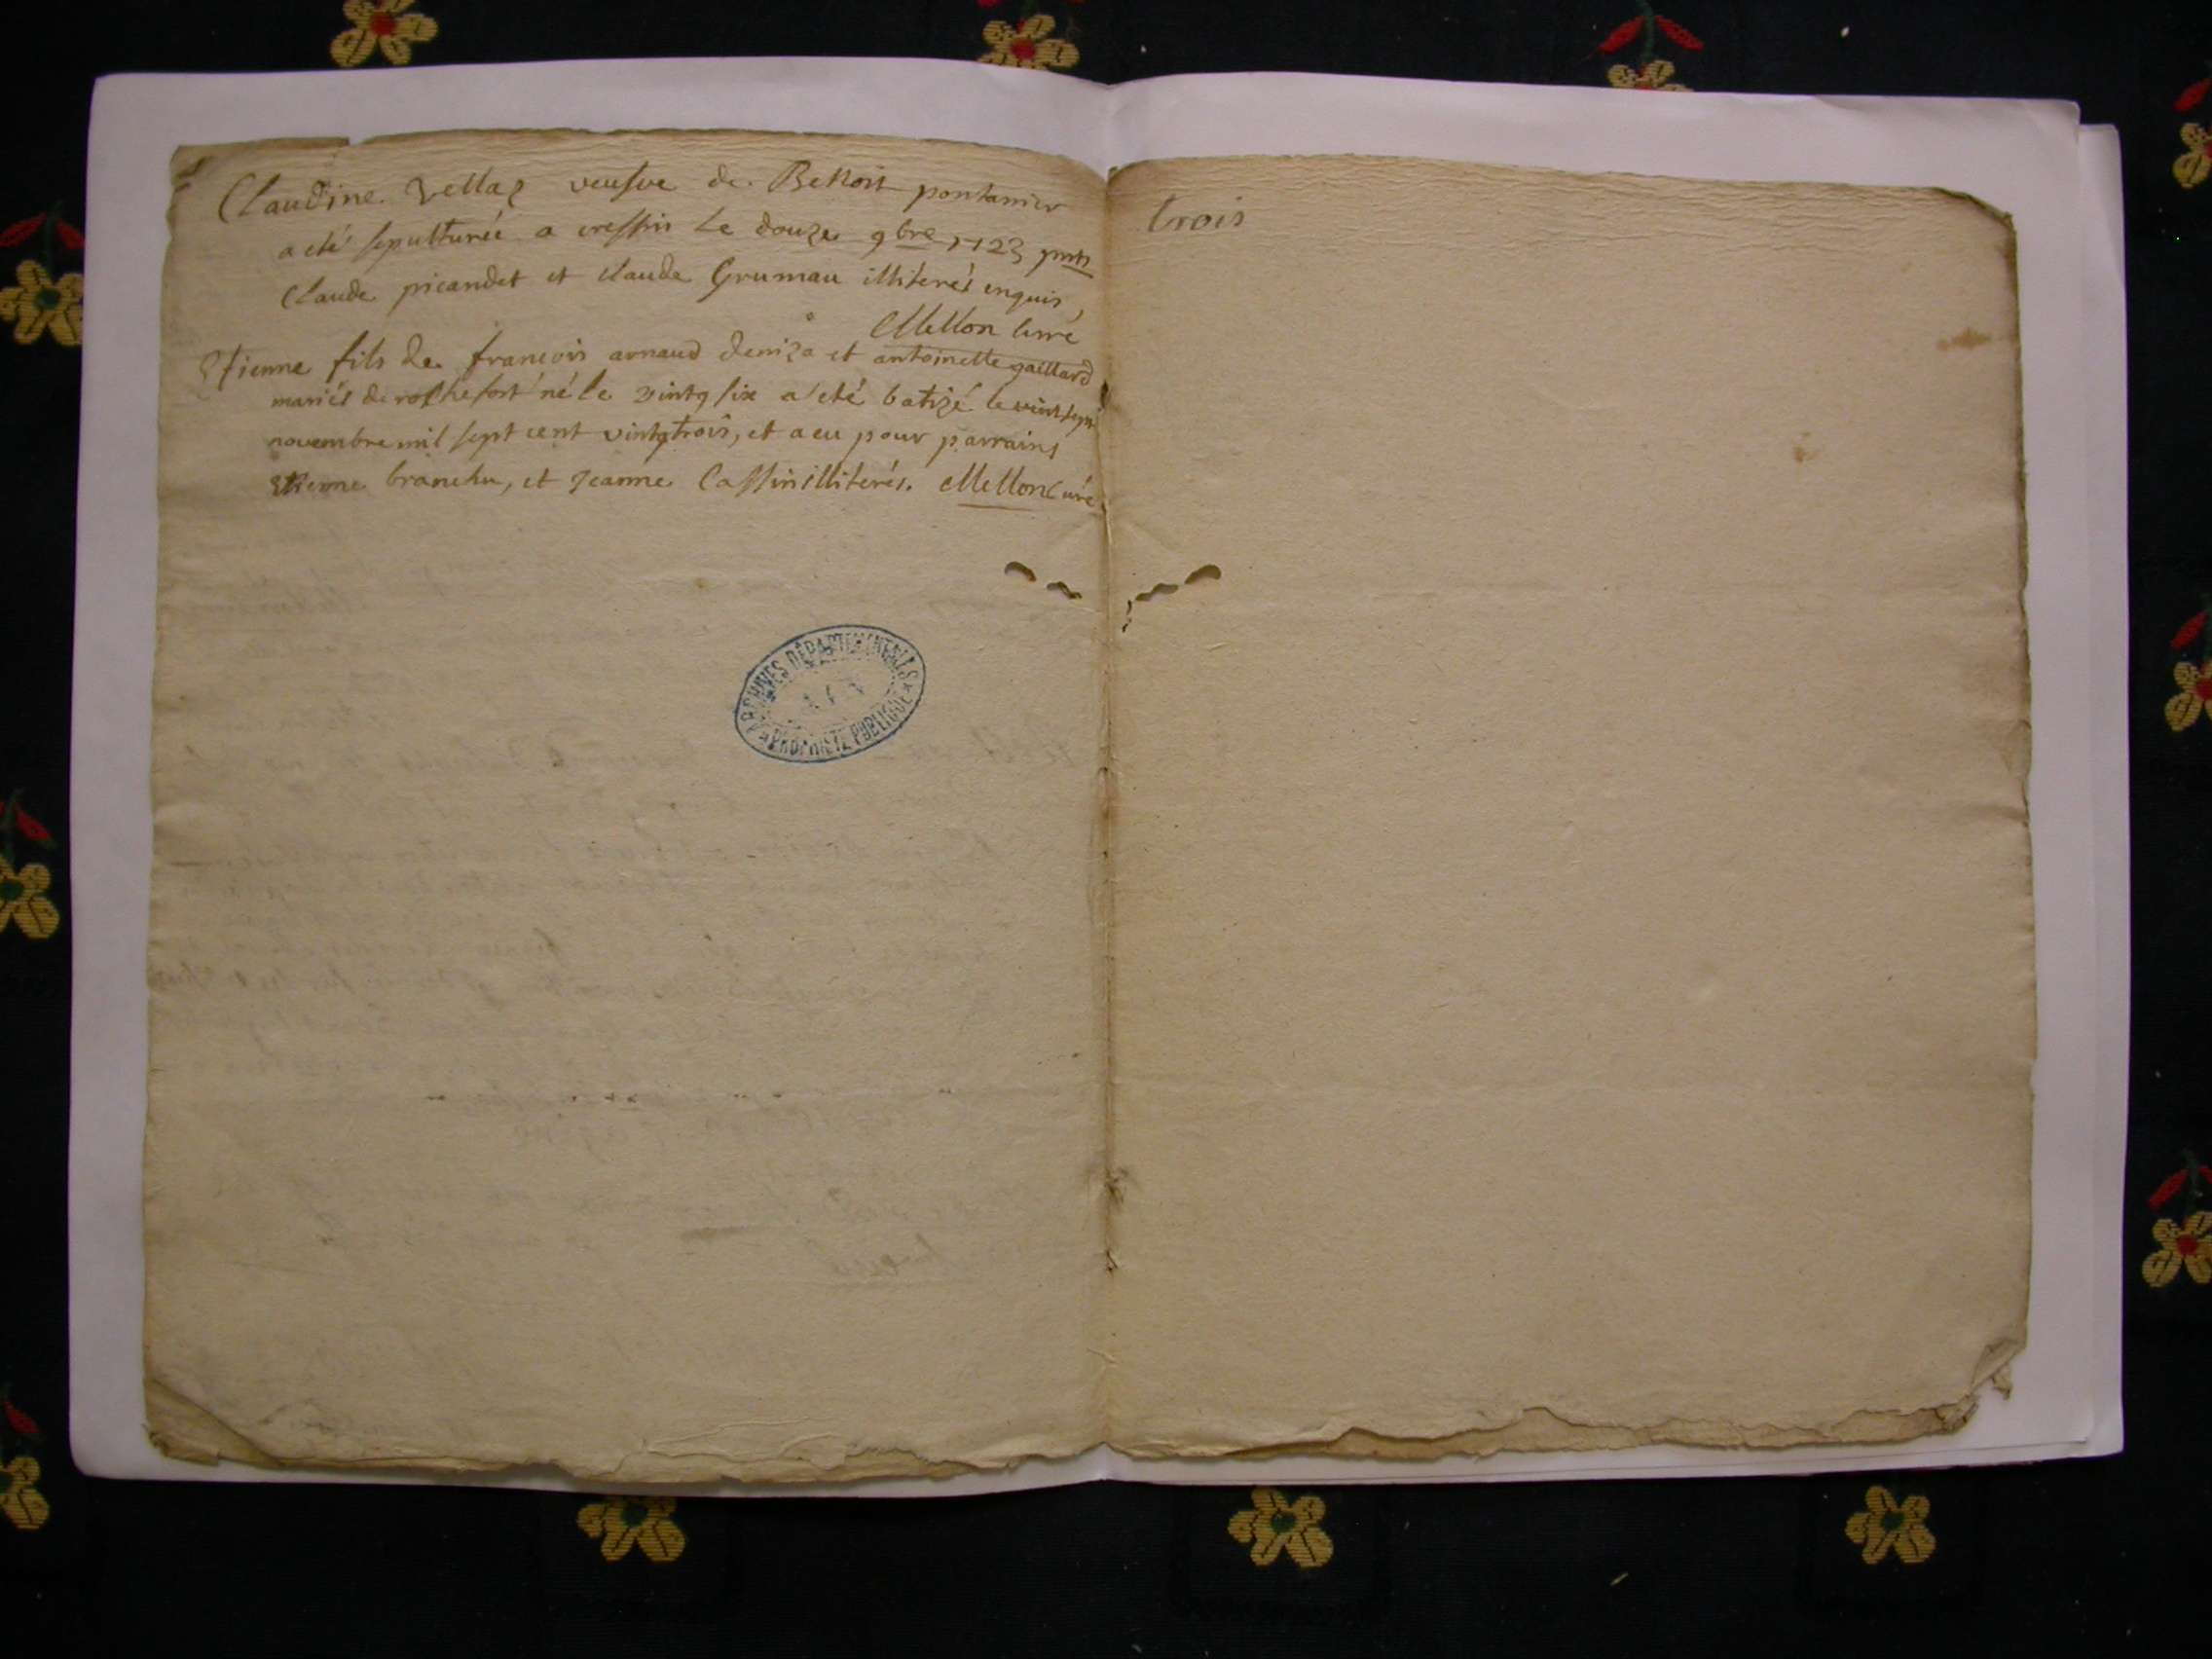 Claudine Vellaz veufve de Benoit pontanier
a eté sepulturée a cressin le douze 9bre 1723 pnts
Claude picandet et claude Grumau illiterés enquis,
Mellon curé
Etienne fils de francois arnaud deniza et antoinette gaillard
mariés de rochefort né le vintg six a eté batizé le vint sept
novembre mil sept cent vintgtrois, et a eu pour parrains
Etienne branchu, et Jeanne Cassin illiterés. Mellon Curé
ARCHIVES DÉPARTEMENTALES
AIN
PROPRIÉTÉ PUBLIQUE
trois